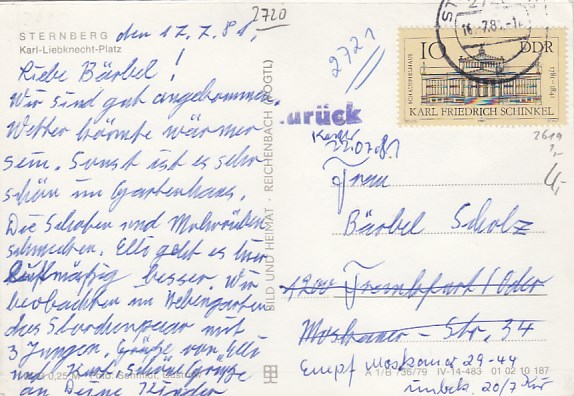 STERNBERG
Karl-Liebknecht-Platz
den 17.7.81,
Liebe Bärbel!
Wir sind gut angekommen.
Wetter könnte wärmer
sein. Sonst ist es sehr
schön im Gartenhaus.
Die Schoten und Mohrrüben
schmecken. Ello geht es hier
luftmäßig besser. Wir
beobachten im Nebengarten
das Storchenpaar mit
3 Jungen. Grüße von Ello
und Kurt. Schöne Grüße
an Deine Kinder
0,25 M
BILD UND HEIMAT · REICHENBACH (VOGTL)
2720
2721
10 DDR
SCHAUSPIELHAUS
1781-1841
KARL FRIEDRICH SCHINKEL
.urück
22.07.81
2619
1,-
4,-
Frau
Bärbel Scholz
1200 Frankfurt/Oder
Moskauer-Str. 34
Empf Moskauer 29-44
unbek. 20/7
A 1/B 136/79 IV-14-483 01 02 10 187